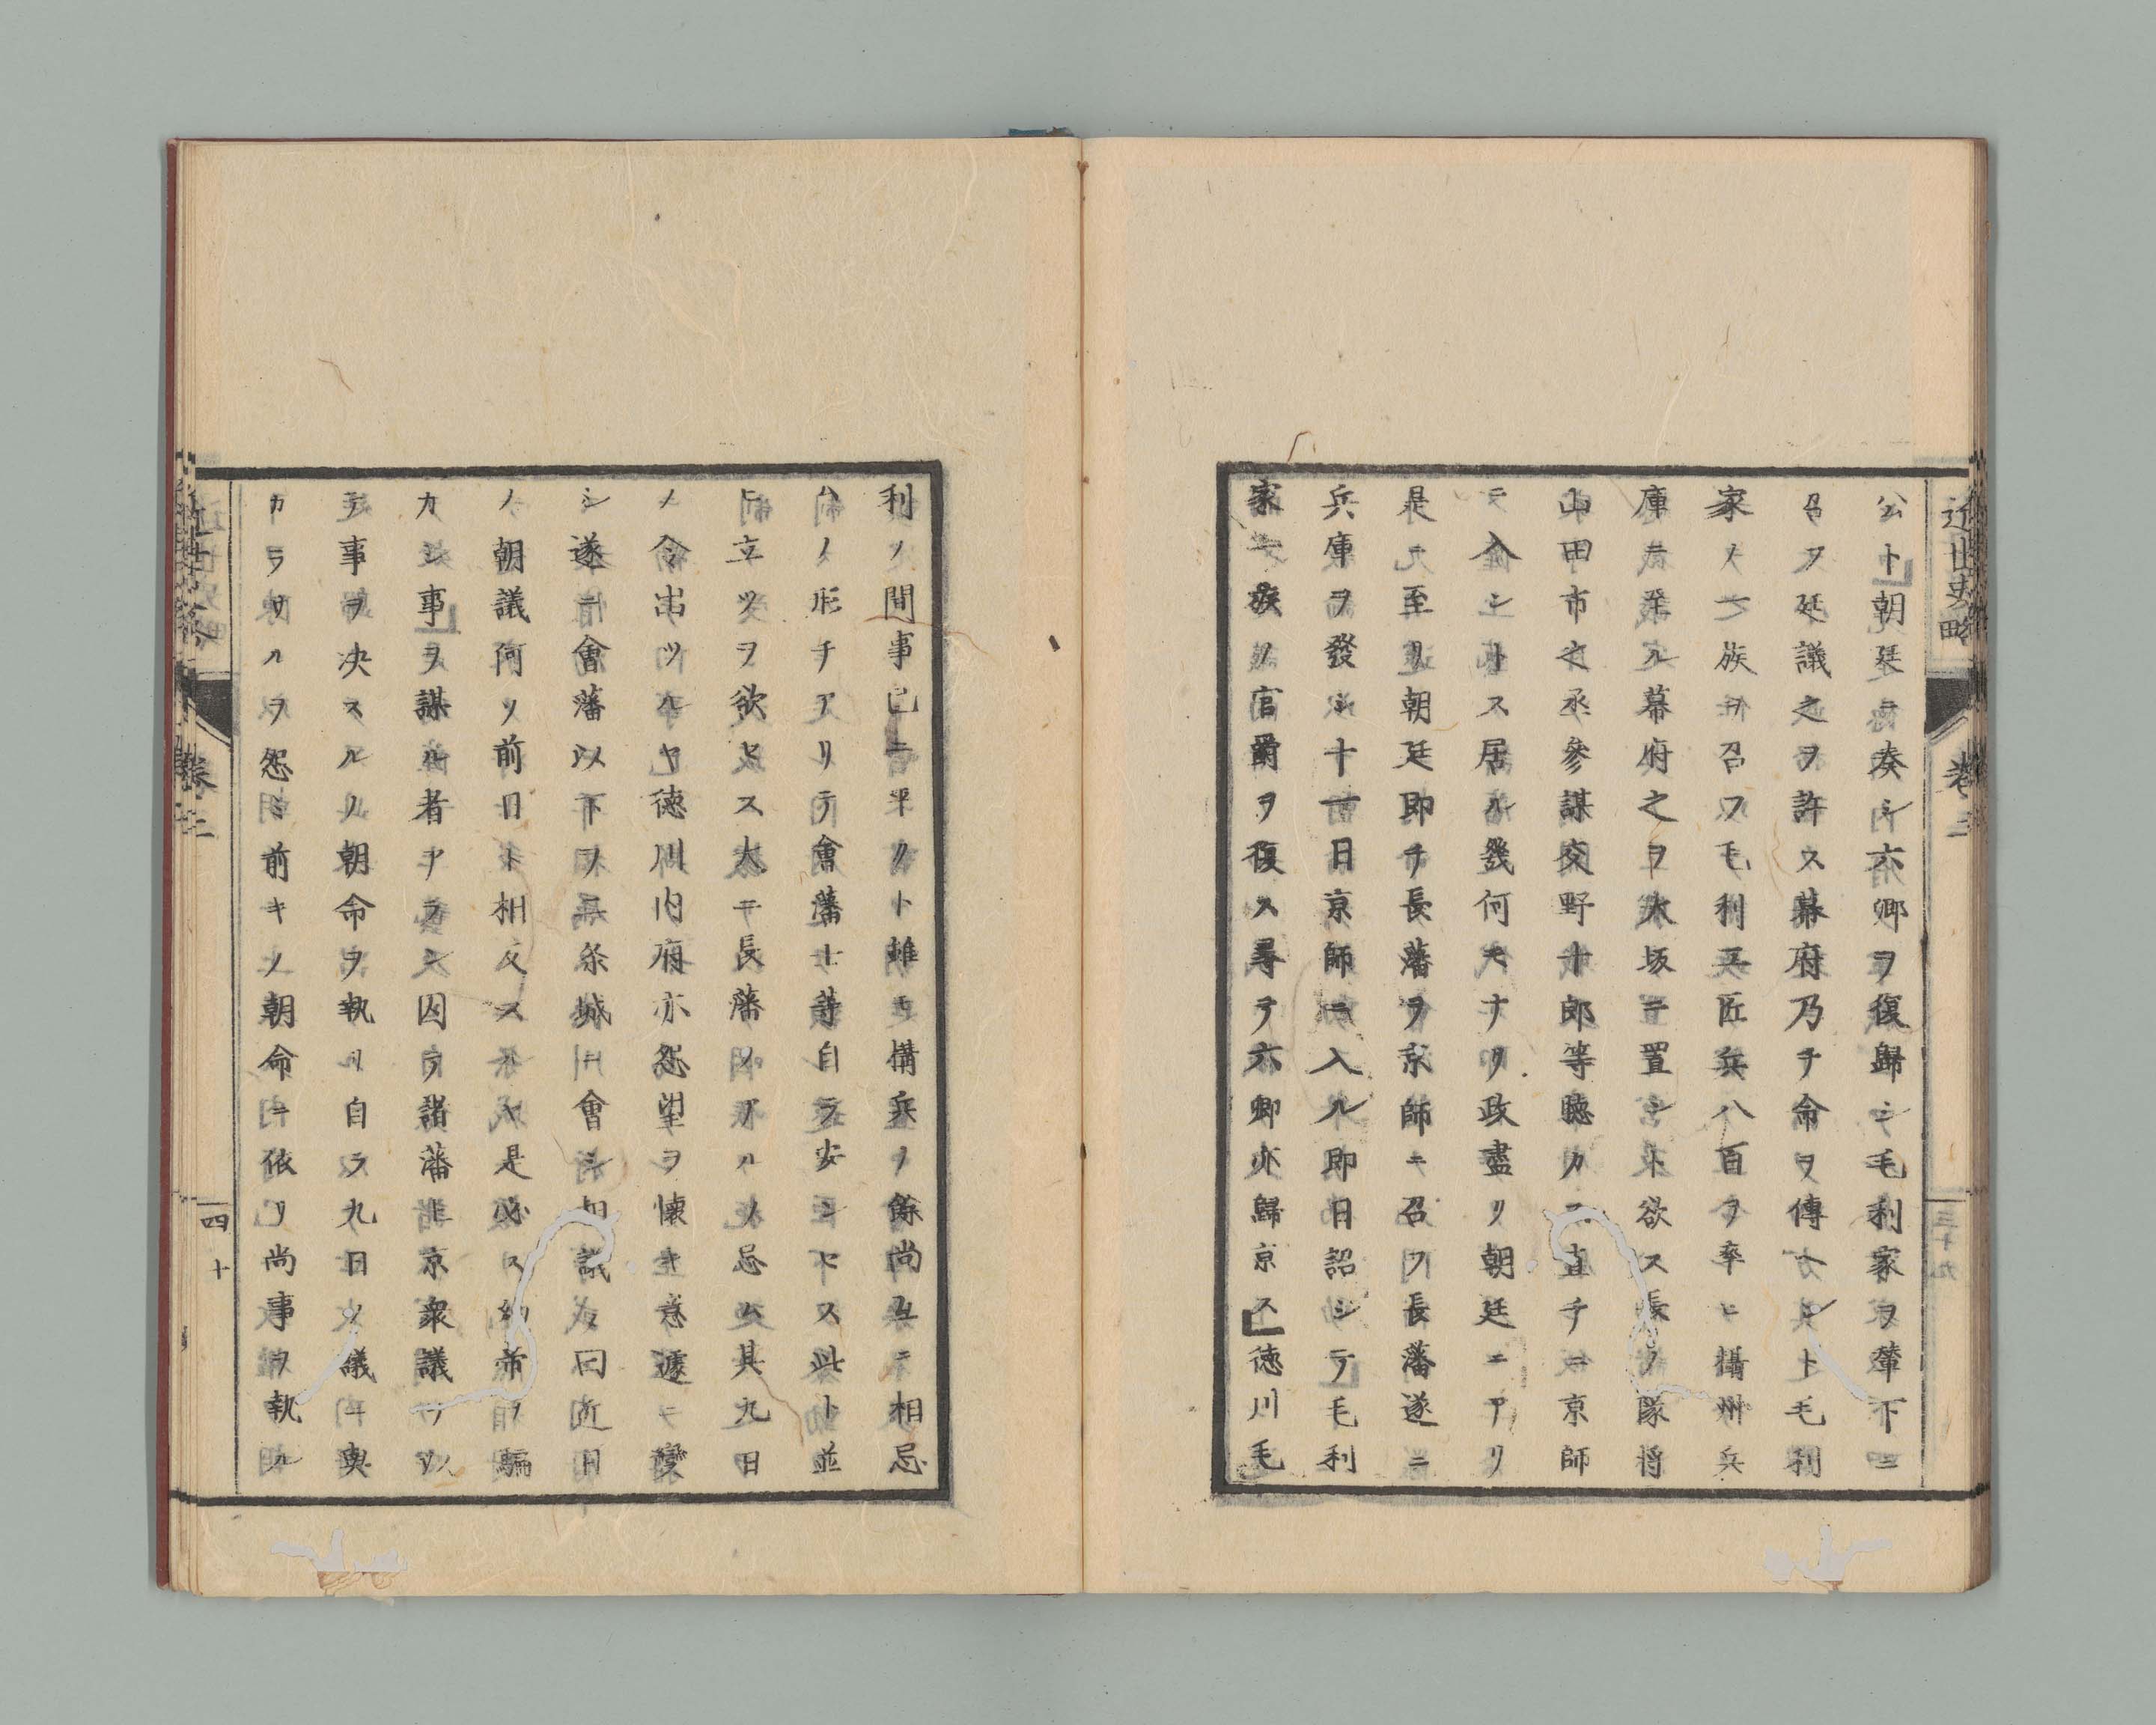 近世史略
卷三
公ト朝廷ニ奏シ六卿ヲ復歸シ毛利家ヲ輦下ニ
召ス廷議之ヲ許ス幕府乃チ命ヲ傳ヘント毛利
家ノ一族ヲ召ス毛利工匠兵八百ヲ率ヒ攝州兵
庫ニ至ル幕府之ヲ大坂ニ置ント欲ス長ノ隊將
山田市之丞參謀交野十郎等聽カス直チニ京師
ニ入ントス居ル幾何モナク政盡ク朝廷ニアリ
是ニ至リ朝廷即チ長藩ヲ京師ニ召ス長藩遂ニ
兵庫ヲ發シ十一日京師ニ入ル即日詔シテ毛利
家一族ノ官爵ヲ復ス尋テ六卿亦歸京ス德川毛
利ノ間事已ニ平クト雖モ構兵ノ餘尚互ニ相忌
ムノ形チアリテ會藩士等自ラ安ンセス此ト並
ヒ立ツヲ欲セス大ニ長藩ノ入ルヲ忌ム其九日
ノ令出ツルヤ德川內府亦怨望ヲ懷キ意遽ニ變
シ遂ニ會藩以下ヲ二条城ニ會シ相議シ曰近日
ノ朝議何ソ前日ト相反スルヤ是必ス幼帝ヲ騙
カシ事ヲ謀ル者アラン因テ諸藩在京衆議ヲ以
テ事ヲ決スルノ朝命ヲ執リ自ラ九日ノ議ニ與
カラサルヲ怨ミ前キノ朝命ニ依リ尚事ヲ執ル
四十